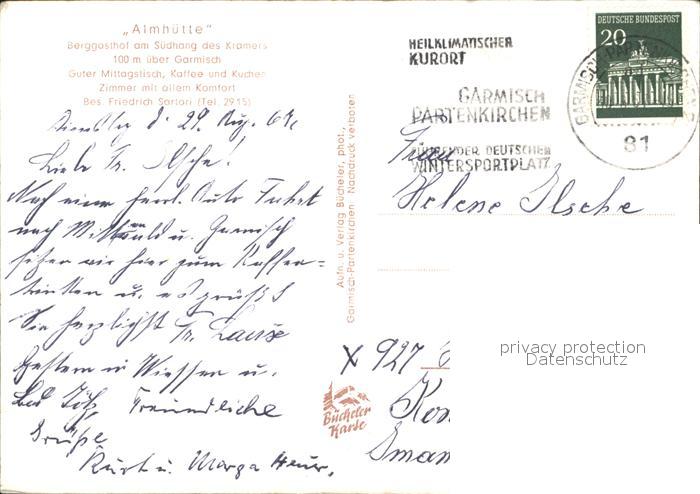 „Almhütte"
Berggasthof am Südhang des Kramers
100 m über Garmisch
Guter Mittagstisch, Kaffee und Kuchen
Zimmer mit allem Komfort
Bes. Friedrich Sartori (Tel. 2915)
Dienstag d. 29. Aug. 67.
Liebe Fr. Ilsche!
Nach einer herrl. Auto Fahrt
nach Mittenwald u. Garmisch
sitzen wir hier zum Kaffee=
trinken u. es grüßt
Sie herzlichst Fr.
Gestern in Wiessee u.
Bad Tölz. Freundliche
Grüße
Kurt u. Marga Heuer.
Aufn. u. Verlag Bücheler, phot.,
Garmisch-Partenkirchen. Nachdruck verboten
HEILKLIMATISCHER
KURORT
GARMISCH
PARTENKIRCHEN
FÜHRENDER DEUTSCHER
WINTERSPORTPLATZ
DEUTSCHE BUNDESPOST
20
GARMISCH-PARTENKIRCHEN
81
Frau
Helene Ilsche
X 927
Bücheler
Karte
privacy protection
Datenschutz